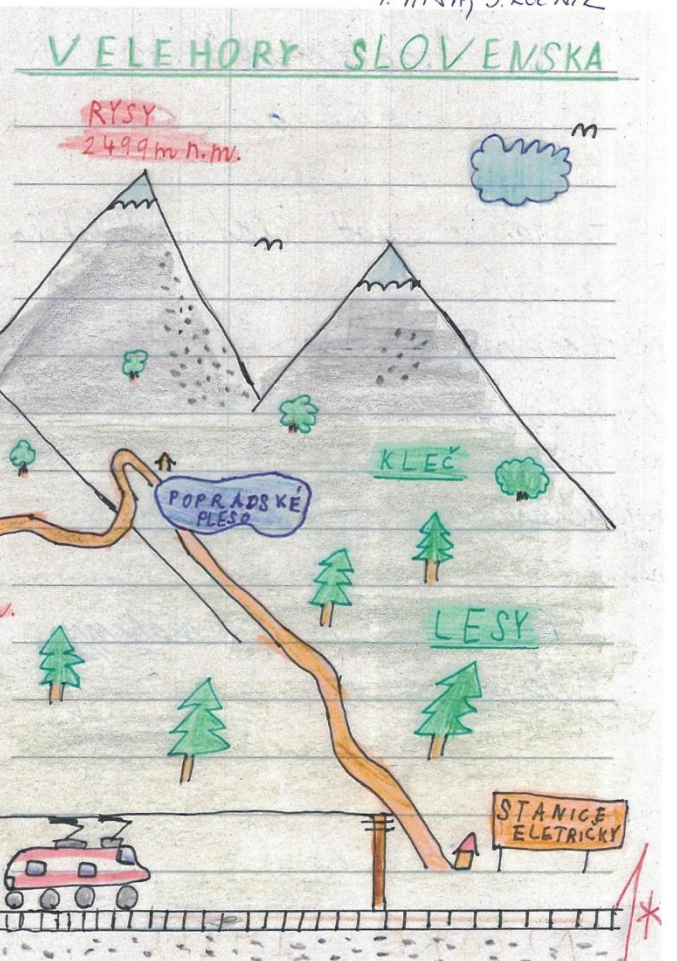 VELEHORY SLOVENSKA
RYSY
2499m n.m.
KLEČ
POPRADSKÉ
PLESO
LESY
STANICE
ELETRICKY